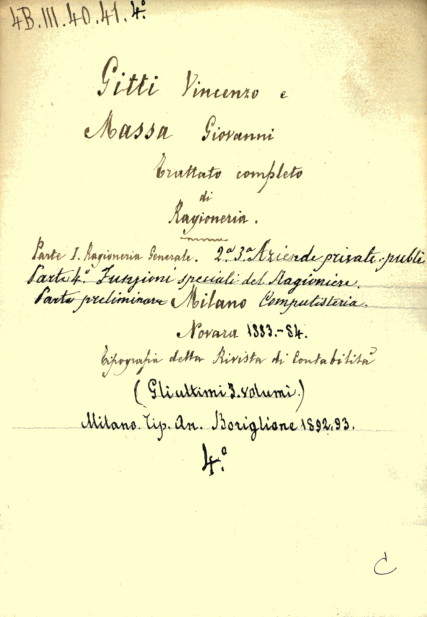 4B.III.40.41.4º
Gitti Vincenzo e
Massa Giovanni
Trattato completo
di
Ragioneria.
Parte I. Ragioneria Generale. 2ª 3ª Aziende private. publi
Parte 4ª Funzioni speciali del Ragioniere.
Parte preliminare Milano Computisteria.
Novara 1883.-84.
Tipografia della Rivista di Contabilità
(Gli ultimi 3. volumi.)
Milano. Tip. An. Boriglione 1892.93.
4.º
C